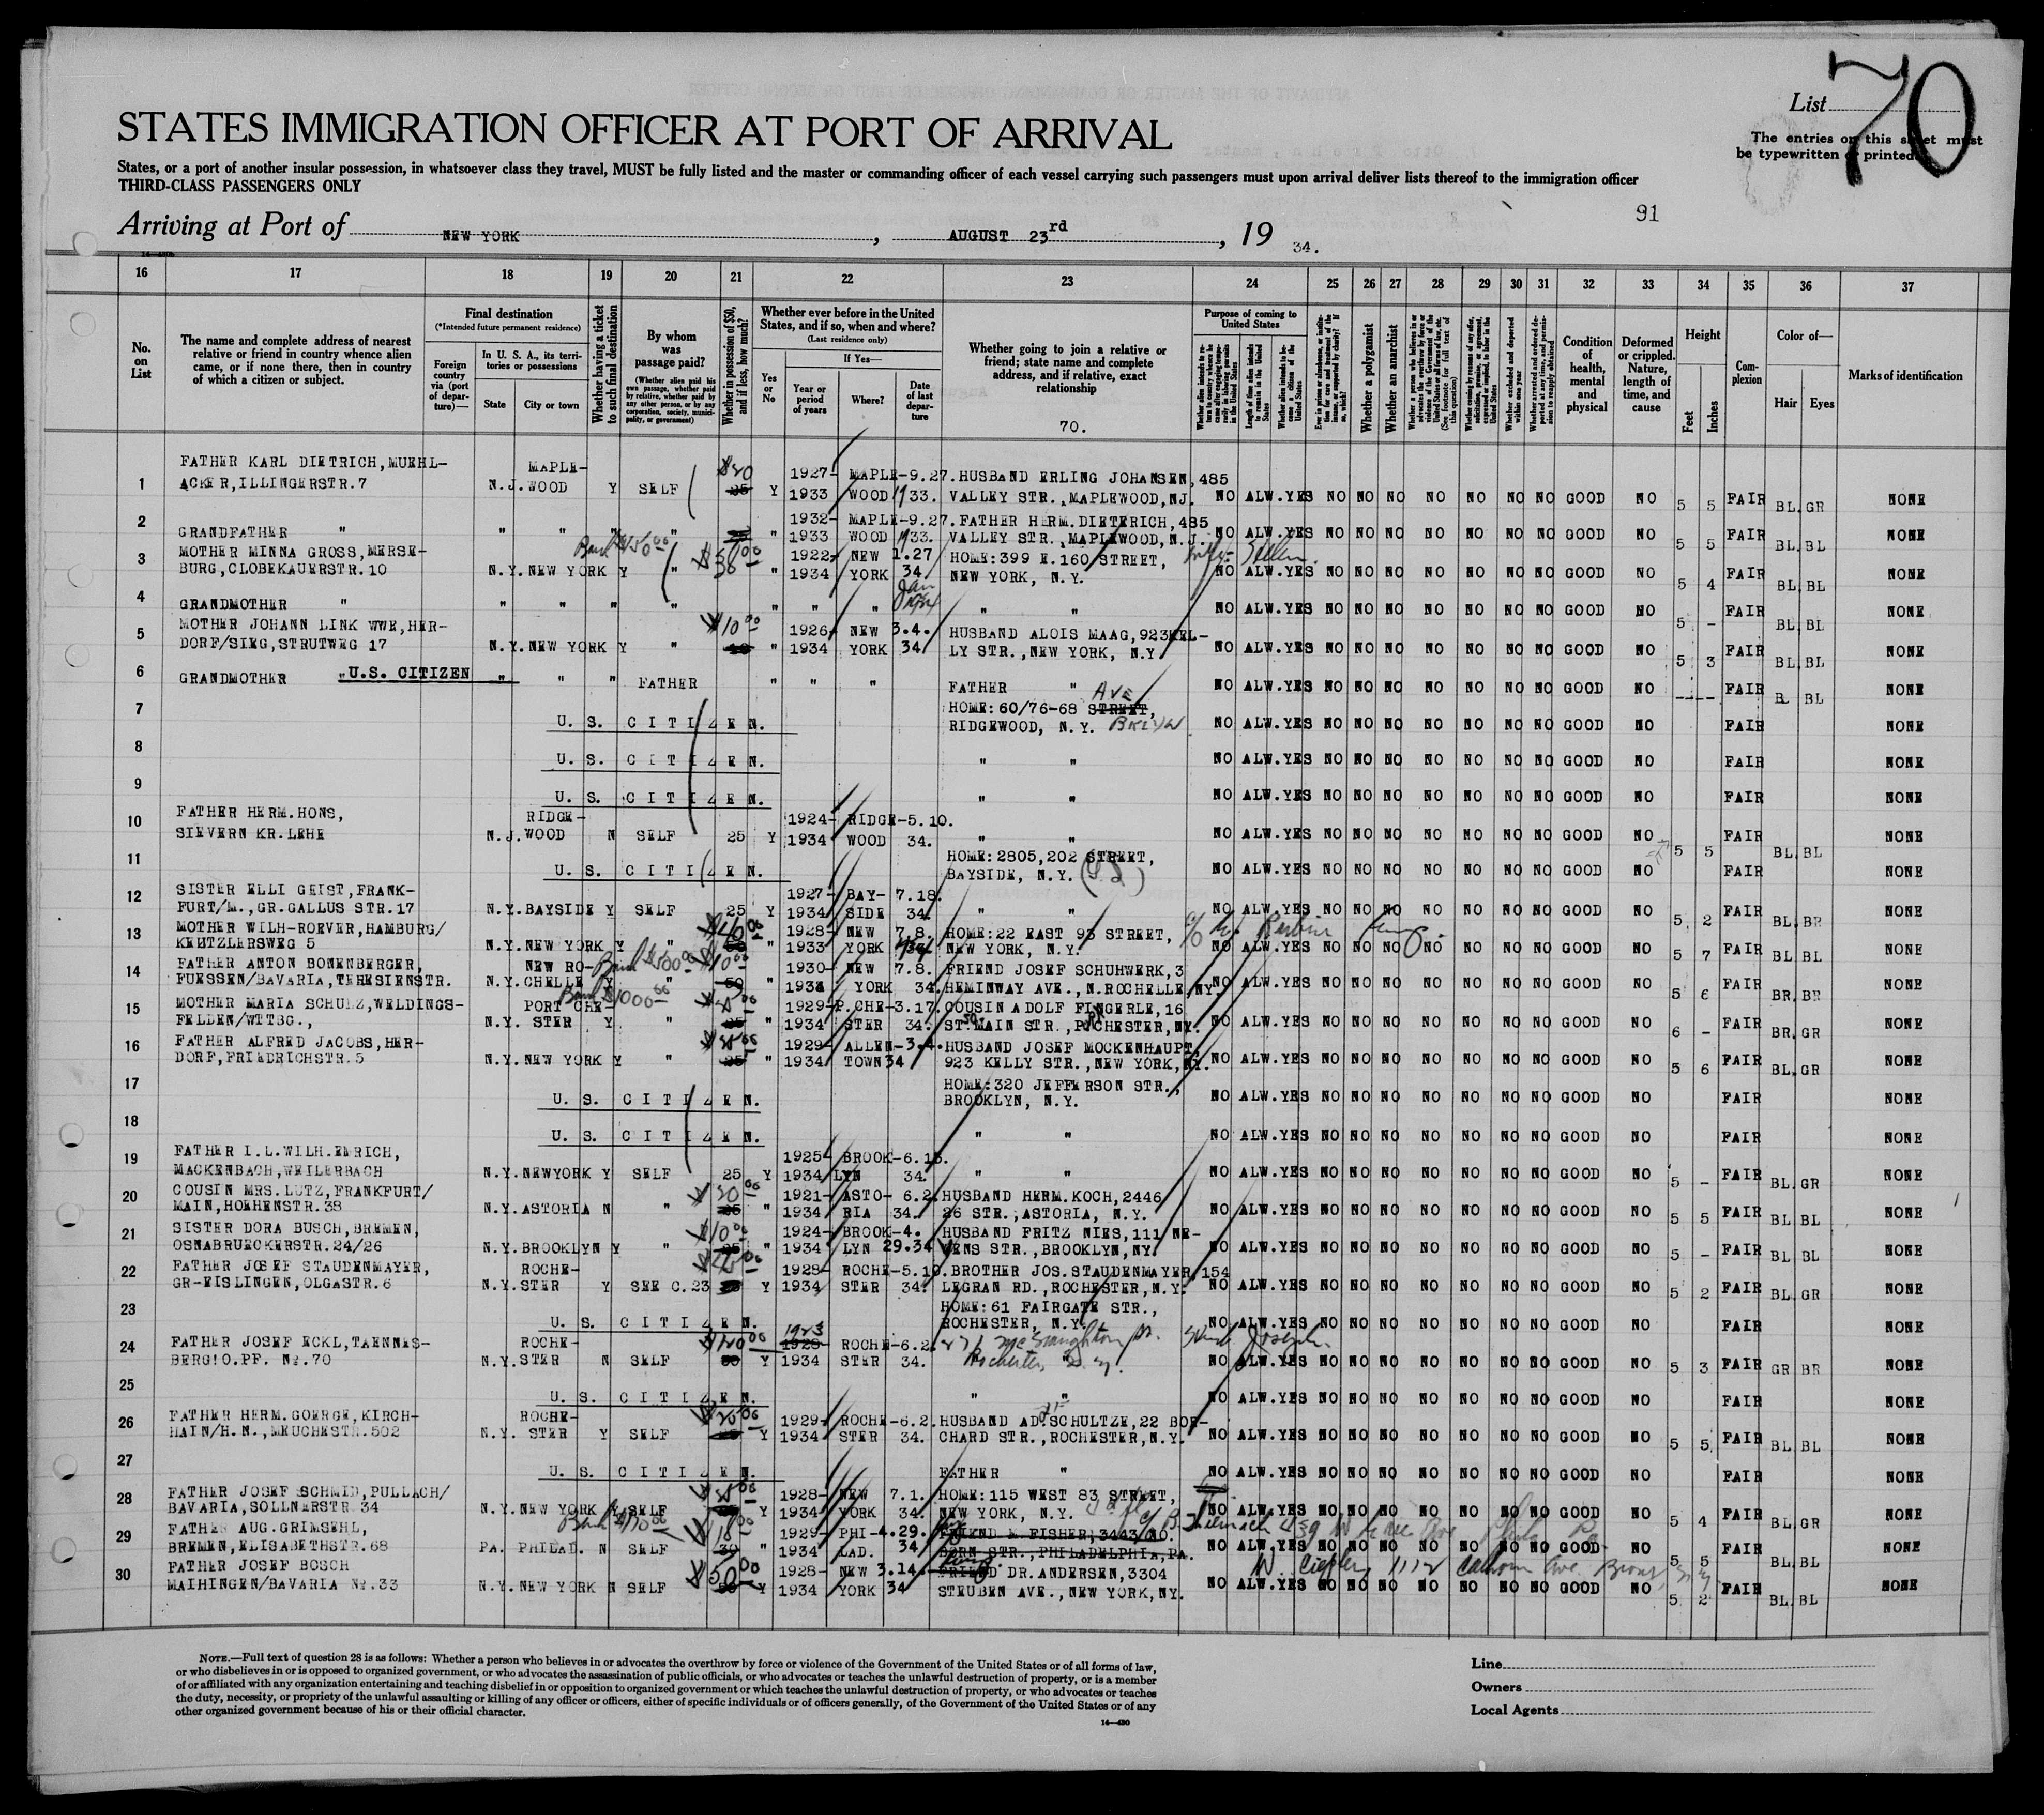 70
List
The entries on this sheet must
be typewritten or printed
STATES IMMIGRATION OFFICER AT PORT OF ARRIVAL
States, or a port of another insular possession, in whatsoever class they travel, MUST be fully listed and the master or commanding officer of each vessel carrying such passengers must upon arrival deliver lists thereof to the immigration officer
THIRD-CLASS PASSENGERS ONLY
91
Arriving at Port of NEW YORK, AUGUST 23rd, 19 34.
16 17 18 19 20 21 22 23 24 25 26 27 28 29 30 31 32 33 34 35 36 37
No. on List
The name and complete address of nearest relative or friend in country whence alien came, or if none there, then in country of which a citizen or subject.
Final destination
(*Intended future permanent residence)
Foreign country via (port of departure)—
In U. S. A., its territories or possessions
State City or town
Whether having a ticket to such final destination
By whom was passage paid?
(Whether alien paid his own passage, whether paid by relative, whether paid by any other person, or by any corporation, society, municipality, or government)
Whether in possession of $50, and if less, how much?
Whether ever before in the United States, and if so, when and where?
(Last residence only)
Yes or No
If Yes—
Year or period of years
Where?
Date of last departure
Whether going to join a relative or friend; state name and complete address, and if relative, exact relationship
70.
Purpose of coming to United States
Whether a polygamist
Whether an anarchist
Condition of health, mental and physical
Deformed or crippled. Nature, length of time, and cause
Height
Feet Inches
Complexion
Color of—
Hair Eyes
Marks of identification
1 FATHER KARL DIETRICH, MUEHL- MAPLE- $20 1927- MAPLE- 9.27. HUSBAND ERLING JOHANSEN, 485
ACKER, ILLINGERSTR. 7 N.J. WOOD Y SELF Y 1933 WOOD 33. VALLEY STR., MAPLEWOOD, NJ. NO ALW. YES NO NO NO NO NO NO NO GOOD NO 5 5 FAIR BL. GR NONE
2 1932- MAPLE- 9.27. FATHER HERM. DIETERICH, 485
GRANDFATHER " " " " " " 1933 WOOD 33. VALLEY STR., MAPLEWOOD, N.J. NO ALW. YES NO NO NO NO NO NO NO GOOD NO 5 5 FAIR BL. BL NONE
3 MOTHER MINNA GROSS, MERSE- 1922- NEW 1.27 HOME: 399 E. 160 STREET,
BURG, CLOBEKAUERSTR. 10 N.Y. NEW YORK Y " " 1934 YORK 34 NEW YORK, N.Y. NO ALW. YES NO NO NO NO NO NO NO GOOD NO 5 4 FAIR BL BL NONE
4 GRANDMOTHER " " " " " " " " " " NO ALW. YES NO NO NO NO NO NO NO GOOD NO 5 - FAIR BL BL NONE
5 MOTHER JOHANN LINK WWE, HER- $10 00 1926- NEW 3.4. HUSBAND ALOIS MAAG, 923 KEL-
DORF/SIEG, STRUTWEG 17 N.Y. NEW YORK Y " " 1934 YORK 34 LY STR., NEW YORK, N.Y. NO ALW. YES NO NO NO NO NO NO NO GOOD NO 5 3 FAIR BL BL NONE
6 GRANDMOTHER " U.S. CITIZEN " " " FATHER " " " FATHER " NO ALW. YES NO NO NO NO NO NO NO GOOD NO ---- FAIR BL NONE
7 HOME: 60/76-68 STREET, Ave
U. S. CITIZEN. RIDGEWOOD, N.Y. NO ALW. YES NO NO NO NO NO NO NO GOOD NO FAIR NONE
8 U. S. CITIZEN. " " NO ALW. YES NO NO NO NO NO NO NO GOOD NO FAIR NONE
9 U. S. CITIZEN. " " NO ALW. YES NO NO NO NO NO NO NO GOOD NO FAIR NONE
10 FATHER HERM. HONS, RIDGE- 1924- RIDGE- 5.10.
SIEVERN KR. LEHE N.J. WOOD N SELF 25 Y 1934 WOOD 34. " " NO ALW. YES NO NO NO NO NO NO NO GOOD NO 5 5 FAIR BL. BL NONE
11 HOME: 2805, 202 STREET,
U. S. CITIZEN. BAYSIDE, N.Y. NO ALW. YES NO NO NO NO NO NO NO GOOD NO FAIR NONE
12 SISTER ELLI GEIST, FRANK- 1927- BAY- 7.18.
FURT/M., GR. GALLUS STR. 17 N.Y. BAYSIDE Y SELF 25 Y 1934 SIDE 34. " " NO ALW. YES NO NO NO NO NO NO NO GOOD NO 5 2 FAIR BL. BR NONE
13 MOTHER WILH-ROEVER, HAMBURG/ $40 00 1928- NEW 7.8. HOME: 22 EAST 93 STREET,
KEETZLERSWEG 5 N.Y. NEW YORK Y " " 1933 YORK NEW YORK, N.Y. NO ALW. YES NO NO NO NO NO NO NO GOOD NO 5 7 FAIR BL BL NONE
14 FATHER ANTON BONENBERGER, NEW RO- $10 00 1930- NEW 7.8. FRIEND JOSEF SCHUHWERK, 3
FUESSEN/BAVARIA, THERESIENSTR. N.Y. CHELLE Y " " 1934 YORK 34. HEMINWAY AVE., N. ROCHELLE, NY. NO ALW. YES NO NO NO NO NO NO NO GOOD NO 5 6 FAIR BR. BR NONE
15 MOTHER MARIA SCHULZ, WELDINGS- PORT CHE- 1929- P. CHE- 3.17. COUSIN ADOLF FINGERLE, 16
FELDEN/WTTBG., N.Y. STER Y " " 1934 STER 34. ST. MAIN STR., P. CHESTER, NY. NO ALW. YES NO NO NO NO NO NO NO GOOD NO 6 - FAIR BR. GR NONE
16 FATHER ALFRED JACOBS, HER- 1929- ALLEN- 3.4. HUSBAND JOSEF MOCKENHAUPT,
DORF, FRIEDRICHSTR. 5 N.Y. NEW YORK Y " " 1934 TOWN 34 923 KELLY STR., NEW YORK, NY. NO ALW. YES NO NO NO NO NO NO NO GOOD NO 5 6 FAIR BL. GR NONE
17 HOME: 320 JEFFERSON STR.,
U. S. CITIZEN. BROOKLYN, N.Y. NO ALW. YES NO NO NO NO NO NO NO GOOD NO FAIR NONE
18 U. S. CITIZEN. " " NO ALW. YES NO NO NO NO NO NO NO GOOD NO FAIR NONE
19 FATHER I.L. WILH. EMRICH, 1925 BROOK- 6.15.
MACKENBACH, WEILERBACH N.Y. NEWYORK Y SELF 25 Y 1934 LYN 34. " " NO ALW. YES NO NO NO NO NO NO NO GOOD NO 5 - FAIR BL. GR NONE
20 COUSIN MRS. LUTZ, FRANKFURT/ 1921- ASTO- 6.2. HUSBAND HERM. KOCH, 2446
MAIN, HOEHENSTR. 38 N.Y. ASTORIA N " " 1934 RIA 34. 26 STR., ASTORIA, N.Y. NO ALW. YES NO NO NO NO NO NO NO GOOD NO 5 5 FAIR BL BL NONE
21 SISTER DORA BUSCH, BREMEN, $10 00 1924- BROOK- 4. HUSBAND FRITZ NIES, 111 NE-
OSNABRUECKERSTR. 24/26 N.Y. BROOKLYN Y " " 1934 LYN 29.34 VENS STR., BROOKLYN, NY. NO ALW. YES NO NO NO NO NO NO NO GOOD NO 5 - FAIR BL BL NONE
22 FATHER JOSEF STAUDENMAYER, ROCHE- 1928- ROCHE- 5.19. BROTHER JOS. STAUDENMAYER, 154
GR-EISLINGEN, OLGASTR. 6 N.Y. STER Y SEE C. 23 Y 1934 STER 34. LEGRAN RD., ROCHESTER, N.Y. NO ALW. YES NO NO NO NO NO NO NO GOOD NO 5 2 FAIR BL. GR NONE
23 HOME: 61 FAIRGATE STR.,
U. S. CITIZEN. ROCHESTER, N.Y. NO ALW. YES NO NO NO NO NO NO NO GOOD NO FAIR NONE
24 FATHER JOSEF ECKL, TAENNES- ROCHE- $120 00 1923 1928- ROCHE- 6.2.
BERG! O.PF. No. 70 N.Y. STER N SELF Y 1934 STER 34. Rochester, N.Y. NO ALW. YES NO NO NO NO NO NO NO GOOD NO 5 3 FAIR GR BR NONE
25 U. S. CITIZEN. " " NO ALW. YES NO NO NO NO NO NO NO GOOD NO FAIR NONE
26 FATHER HERM. GOERGE, KIRCH- ROCHE- 1929- ROCHE- 6.2. HUSBAND AD. SCHULTZE, 22 BOR-
HAIN/H.N., MEUCHESTR. 502 N.Y. STER Y SELF Y 1934 STER 34. CHARD STR., ROCHESTER, N.Y. NO ALW. YES NO NO NO NO NO NO NO GOOD NO 5 5 FAIR BL BL NONE
27 U. S. CITIZEN. FATHER " NO ALW. YES NO NO NO NO NO NO NO GOOD NO FAIR NONE
28 FATHER JOSEF SCHMID, PULLACH/ 1928- NEW 7.1. HOME: 115 WEST 83 STREET,
BAVARIA, SOLLNERSTR. 34 N.Y. NEW YORK SELF Y 1934 YORK 34. NEW YORK, N.Y. NO ALW. YES NO NO NO NO NO NO NO GOOD NO 5 4 FAIR BL. GR NONE
29 FATHER AUG. GRIMSEHL, 1929- PHI- 4.29. FRIEND M. FISHER, 3443 NO.
BREMEN, ELISABETHSTR. 68 PA. PHILAD. N SELF 30 " 1934 LAD. 34 STR., PHILADELPHIA, PA. NO ALW. YES NO NO NO NO NO NO NO GOOD NO 5 5 FAIR BL. BL NONE
30 FATHER JOSEF BOSCH $50 00 1928- NEW 3.14. FRIEND DR. ANDERSEN, 3304
MAIHINGEN/BAVARIA No. 33 N.Y. NEW YORK N SELF Y 1934 YORK 34 STEUBEN AVE., NEW YORK, NY. NO ALW. YES NO NO NO NO NO NO NO GOOD NO 5 2 FAIR BL. BL NONE
NOTE.—Full text of question 28 is as follows: Whether a person who believes in or advocates the overthrow by force or violence of the Government of the United States or of all forms of law,
or who disbelieves in or is opposed to organized government, or who advocates the assassination of public officials, or who advocates or teaches the unlawful destruction of property, or is a member
of or affiliated with any organization entertaining and teaching disbelief in or opposition to organized government or which teaches the unlawful destruction of property, or who advocates or teaches
the duty, necessity, or propriety of the unlawful assaulting or killing of any officer or officers, either of specific individuals or of officers generally, of the Government of the United States or of any
other organized government because of his or their official character.
14—430
Line
Owners
Local Agents